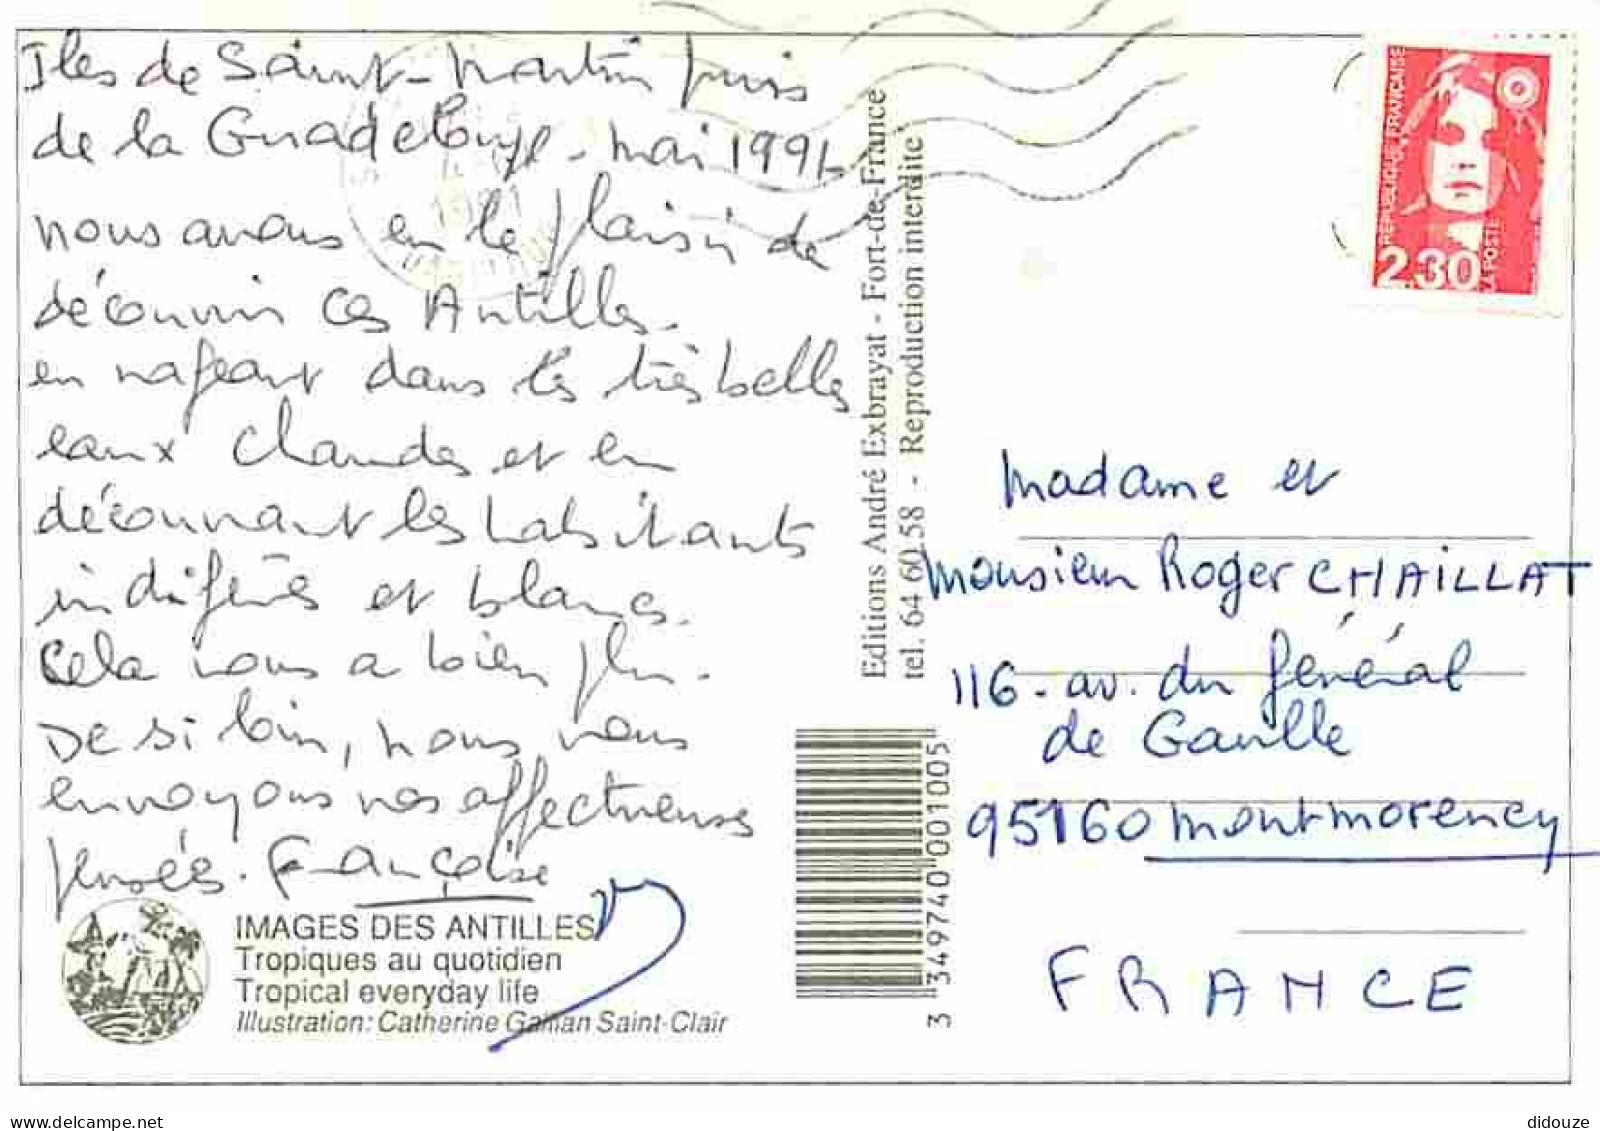 Iles de Saint-Martin puis
de la Guadeloupe - mai 1991
nous avons eu le plaisir de
découvrir ces Antilles.
en nageant dans les très belles
eaux chaudes et en
découvrant les habitants
indifférés et blancs.
Cela nous a bien plu.
De si loin, nous vous
envoyons nos affectueuses
pensées. Françoise
IMAGES DES ANTILLES
Tropiques au quotidien
Tropical everyday life
Illustration: Catherine Saint-Clair
Editions André Exbrayat - Fort-de-France
tel. 64 60 58 - Reproduction interdite
3 349740 001005
REPUBLIQUE FRANÇAISE
2.30
LA POSTE
1991
Madame et
Monsieur Roger CHAILLAT
116 - av. du Général
de Gaulle
95160 Montmorency
FRANCE
delcampe.net
didouze